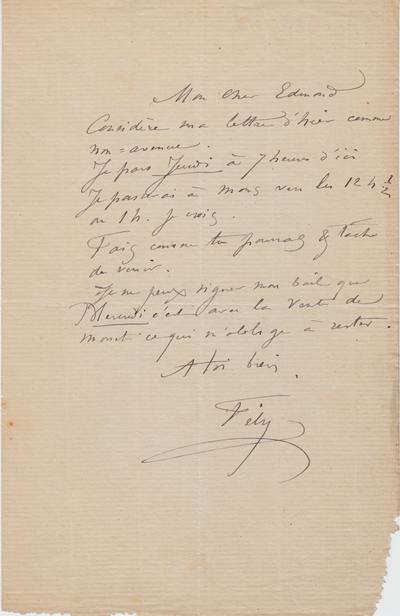 Mon cher Edmond
Considère ma lettre d'hier comme
non=avenue.
Je pars Jeudi à 7 heures d'ici
Je passerai à Mons vers les 12 h 1/2
ou 1 h. Je crois.
Fais comme tu pourras & tâche
de venir.
Je ne peux signer mon bail que
Mercredi c'est avec la vente de
ce qui m'oblige à rester.
A toi bien.
Fély